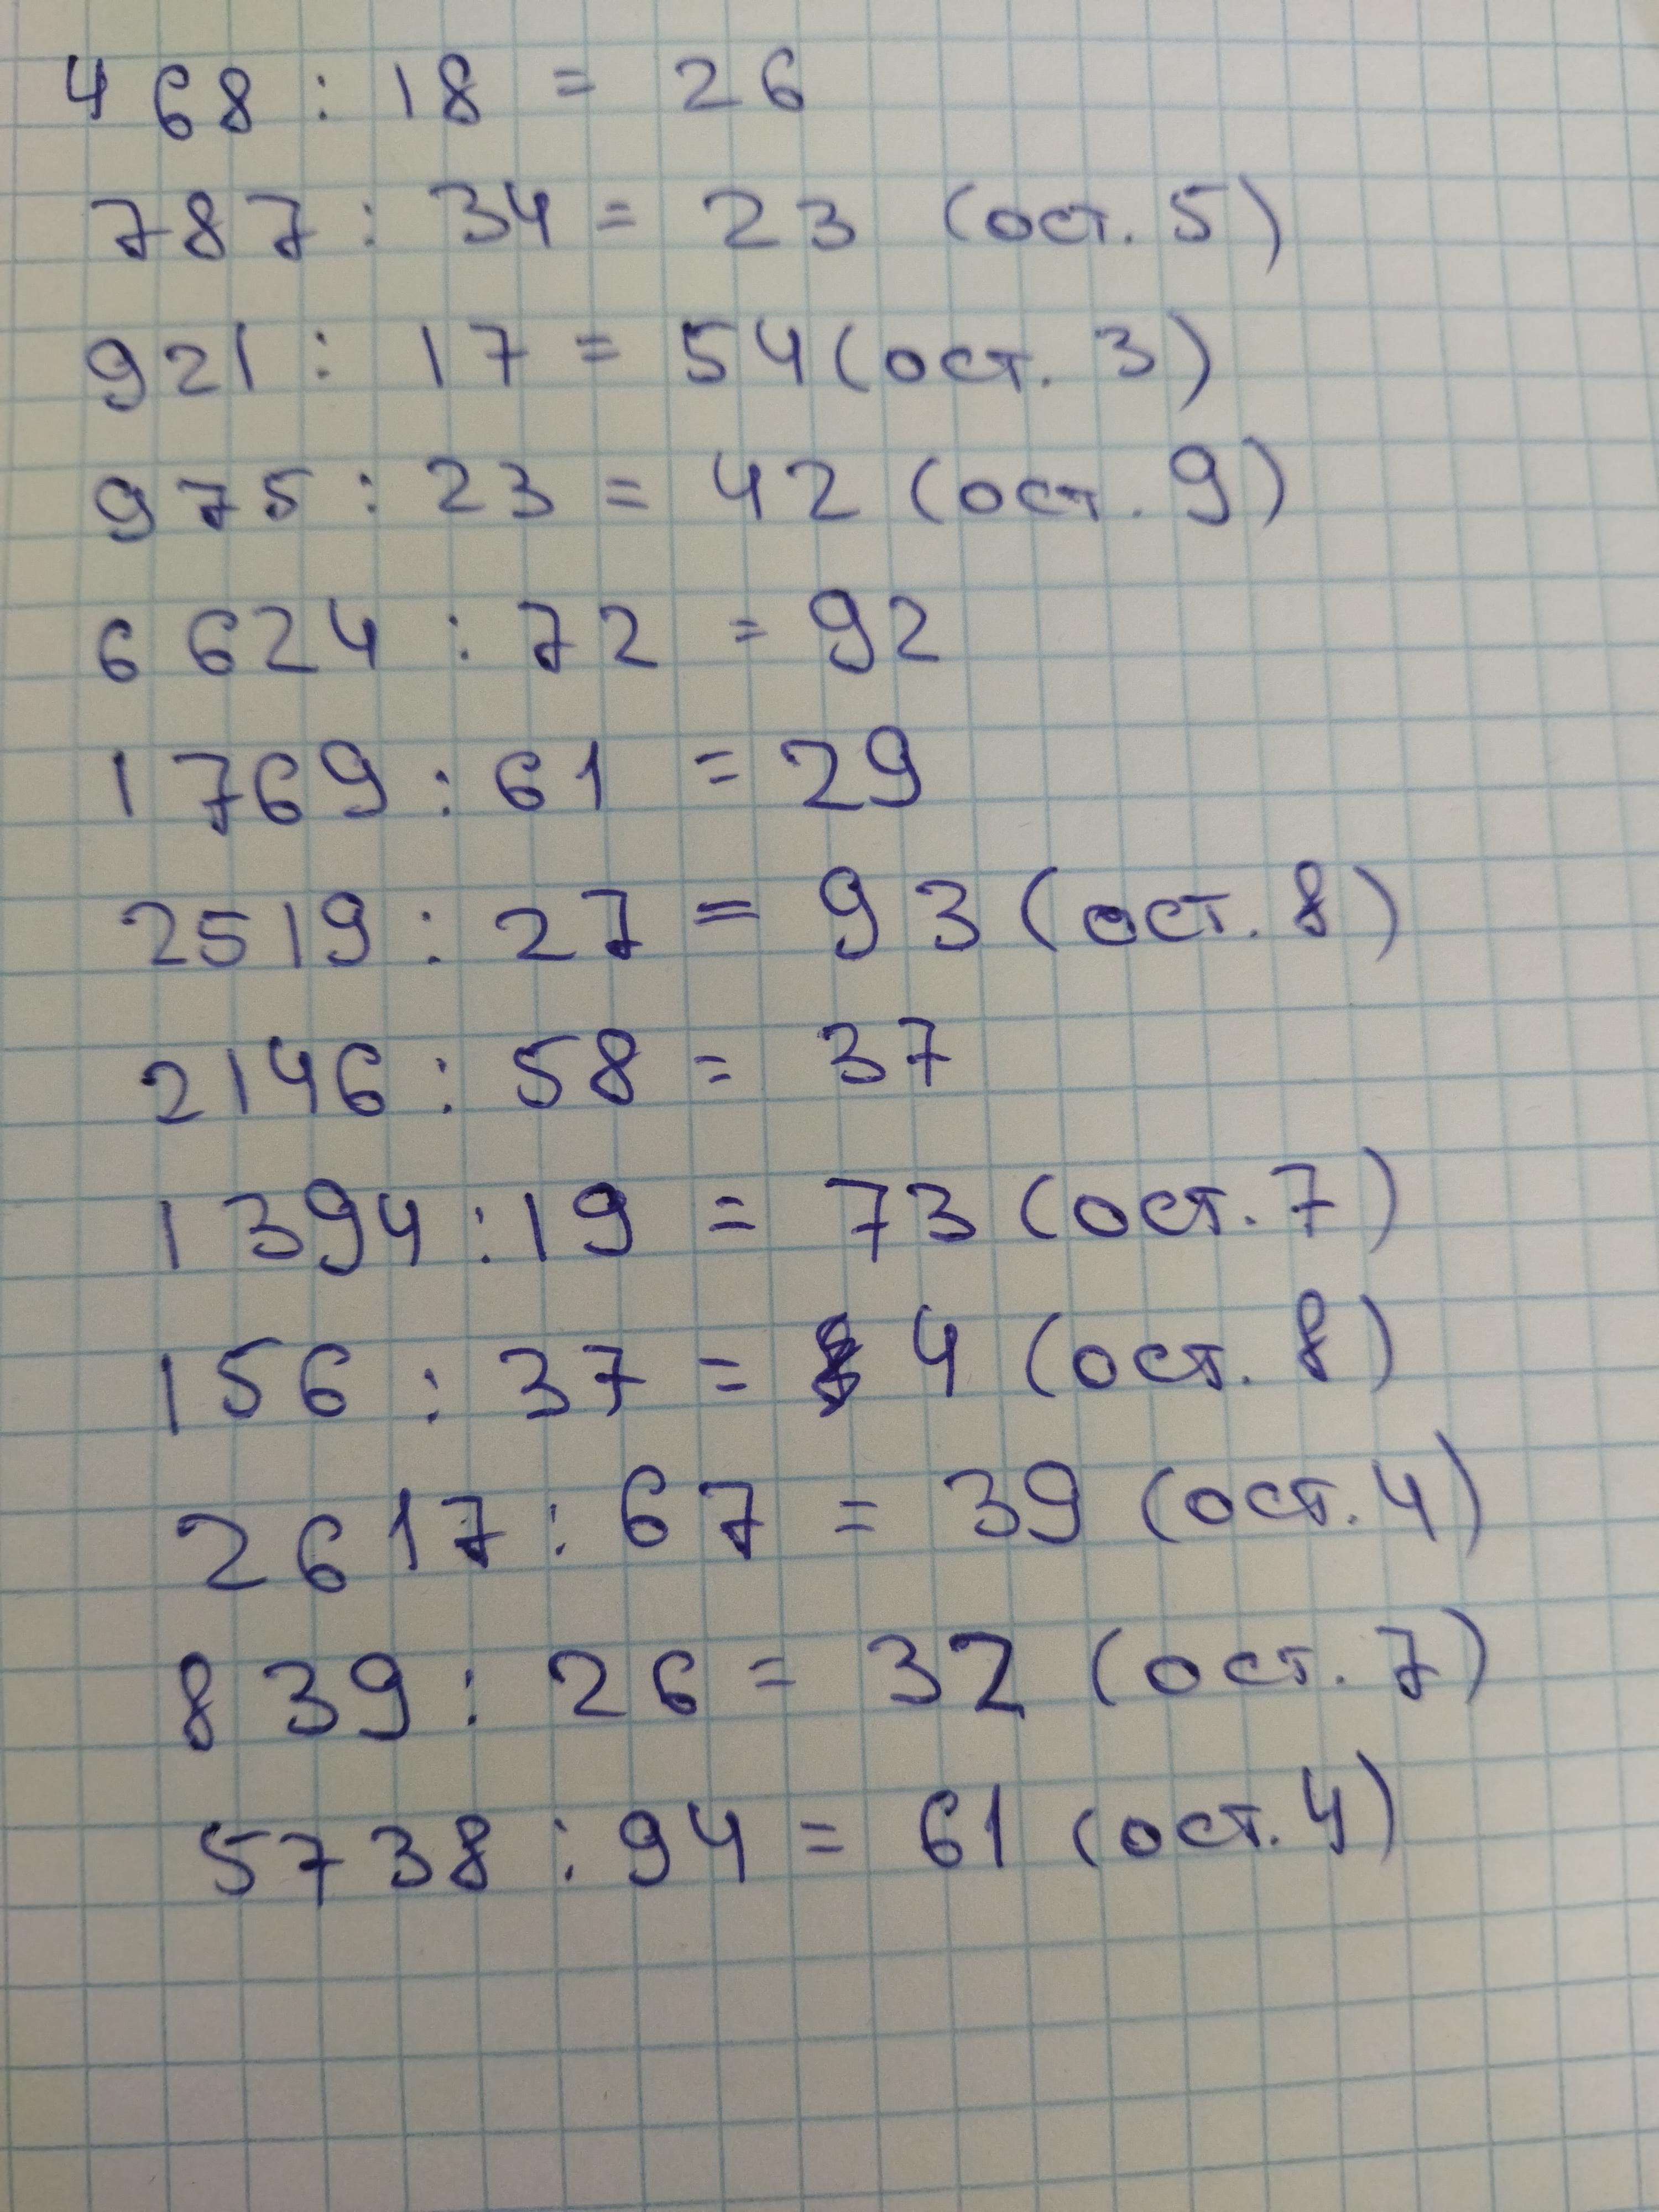 468 : 18 = 26
787 : 34 = 23 (ост. 5)
921 : 17 = 54 (ост. 3)
975 : 23 = 42 (ост. 9)
6624 : 72 = 92
1769 : 61 = 29
2519 : 27 = 93 (ост. 8)
2146 : 58 = 37
1394 : 19 = 73 (ост. 7)
156 : 37 = 4 (ост. 8)
2617 : 67 = 39 (ост. 4)
839 : 26 = 32 (ост. 7)
5738 : 94 = 61 (ост. 4)